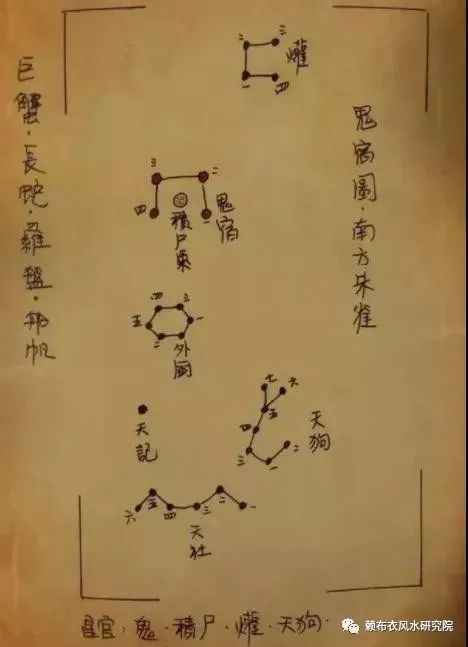 鬼宿圖·南方朱雀
巨蟹·長蛇·羅盤·船帆
二 三
爟
一 四
三 二
四 一
鬼宿
積尸氣
四 三
五 一
二
外厨
天記
七 六
五
四
三 二
一
天狗
六 五 四 三 二 一
天社
星官:鬼·積尸·爟·天狗·
赖布衣风水研究院